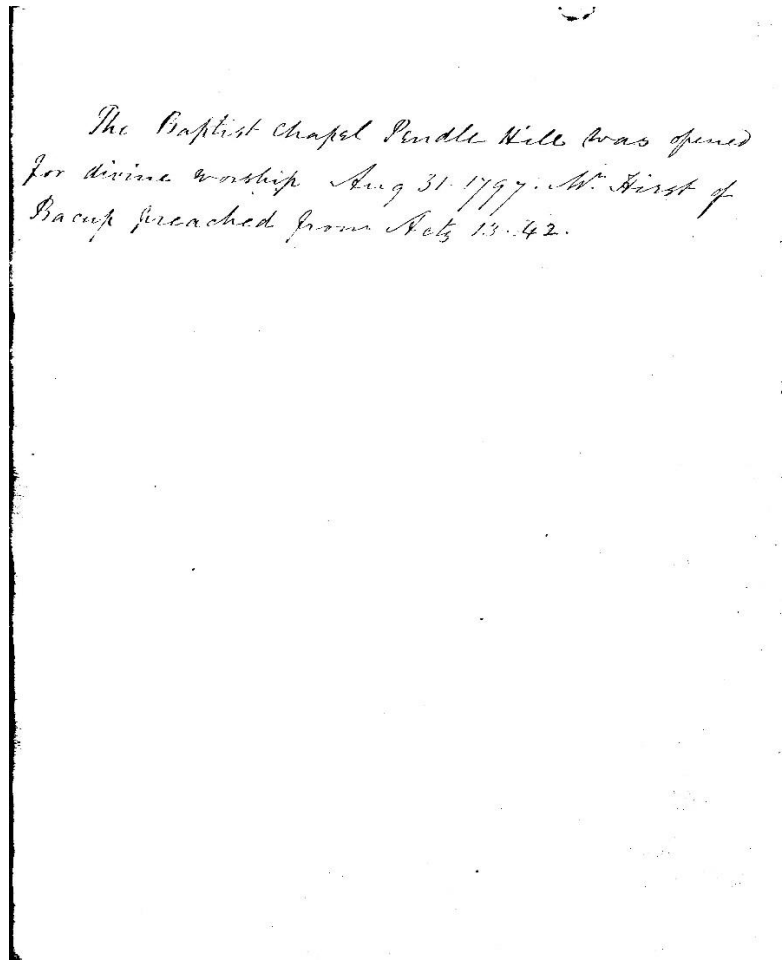 The Baptist Chapel Pendle Hill was opened
for divine worship Aug 31. 1797. Mr. Hirst of
Bacup preached from Acts 13. 42.